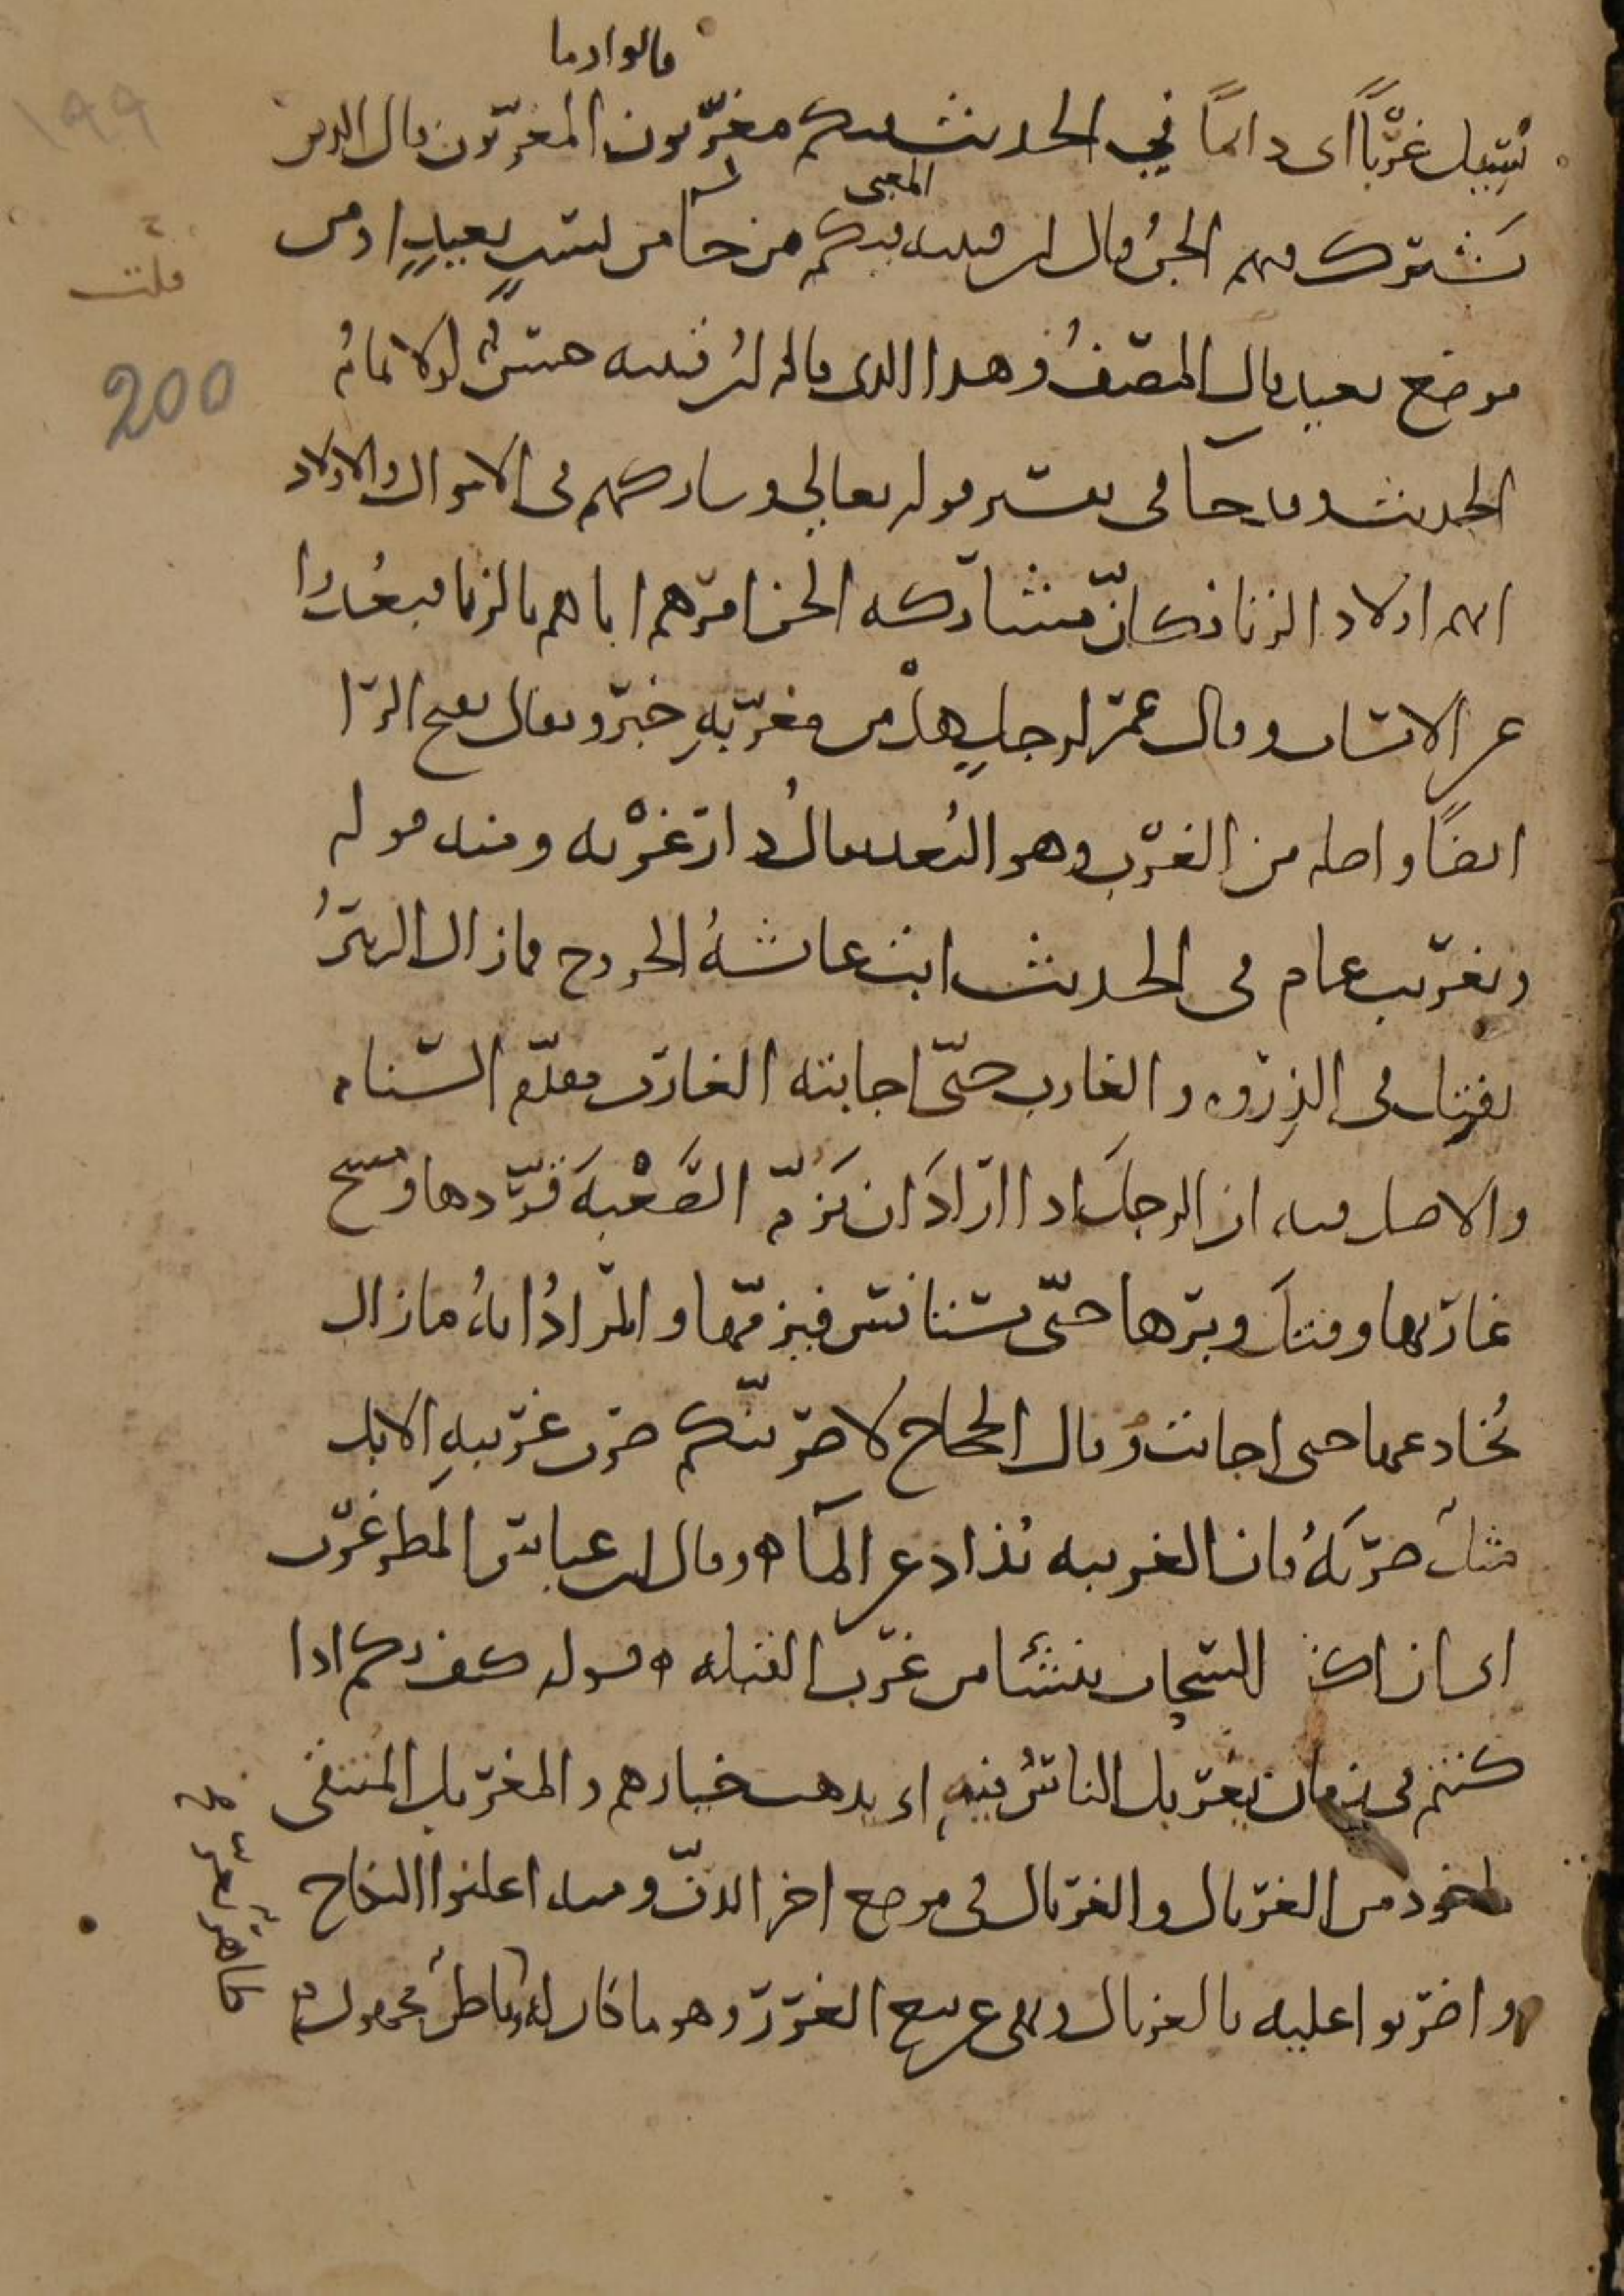 قالوا وما
يسيل غربا أى دائما في الحديث فيكم مغربون المغربون قال الذين
المعنى
تشترك فيهم الجن وقال ابن قتيبه فيكم من جا من نسب بعيد او من
قلت
موضع بعيد قال المصنف وهذا الذى قاله ابن قتيبه حسن لولا تمام
200
١٩٩
الحديث وقد جا فى تفسير قوله تعالى وشاركهم فى الاموال والاولاد
انهم اولاد الزنا فكان مشاركه الجن امرهم اياهم بالزنا فبعدوا
عن الانساب وقال عمر لرجل هل من مغربه خبر ويقال بفتح الرا
ايضا واصله من الغرب وهو البعد يقال دار غربه ومنه قوله
وتغريب عام فى الحديث ابت عائشه الخروج فما زال الزبير
يفتل فى الذروه والغارب حتى اجابته الغارب مقدم السنام
والاصل فيه ان الرجل اذا اراد ان يزم الصعبه قردها ومسح
غاربها وفتل وبرها حتى تستانس فيزمها والمراد انه مازال
يخادعها حتى اجابت وقال الحجاج لاضربنكم ضرب غريبه الابل
مثل ضربه فان الغريبه تذاد عن الما ه وقال ابن عباس المطر غرب
اى ان اكثر السحاب ينشا من غرب القبله ه قوله كيف بكم اذا
كنتم فى زمان يغربل الناس فيه اى يذهب خيارهم والمغربل المنتقى
ماخوذ من الغربال والغربال فى موضع اخر الدف ومنه اعلنوا النكاح
واضربوا عليه بالغربال ونهى عن بيع الغرر وهو ما كان له
ظاهر يغر
وباطن مجهول